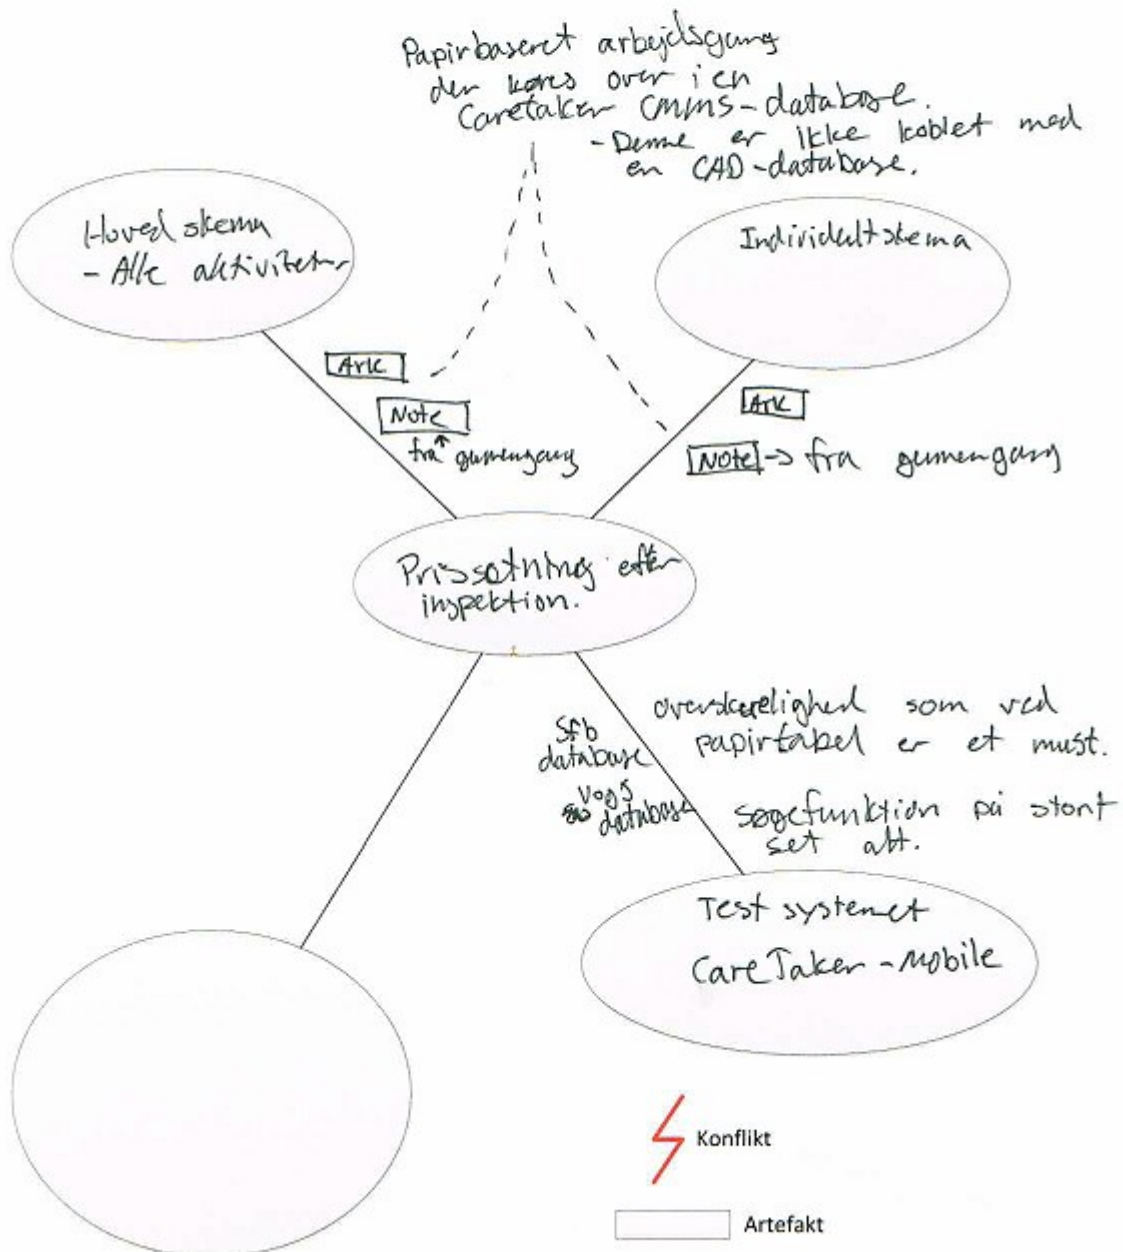 Papirbaseret arbejdsgang
der køres over i en
Caretaker CMMS-database.
- Denne er ikke koblet med
en CAD-database.
Hovedskema
- Alle aktiviteter
Individueltskema
Ark
Note
fra gennemgang
Ark
Note -> fra gennemgang
Prissætning efter
inspektion.
Sfb
database
V&S
database
overskuelighed som ved
papirtabel er et must.
søgefunktion på stort
set alt.
Test systemet
CareTaker - Mobile
Konflikt
Artefakt